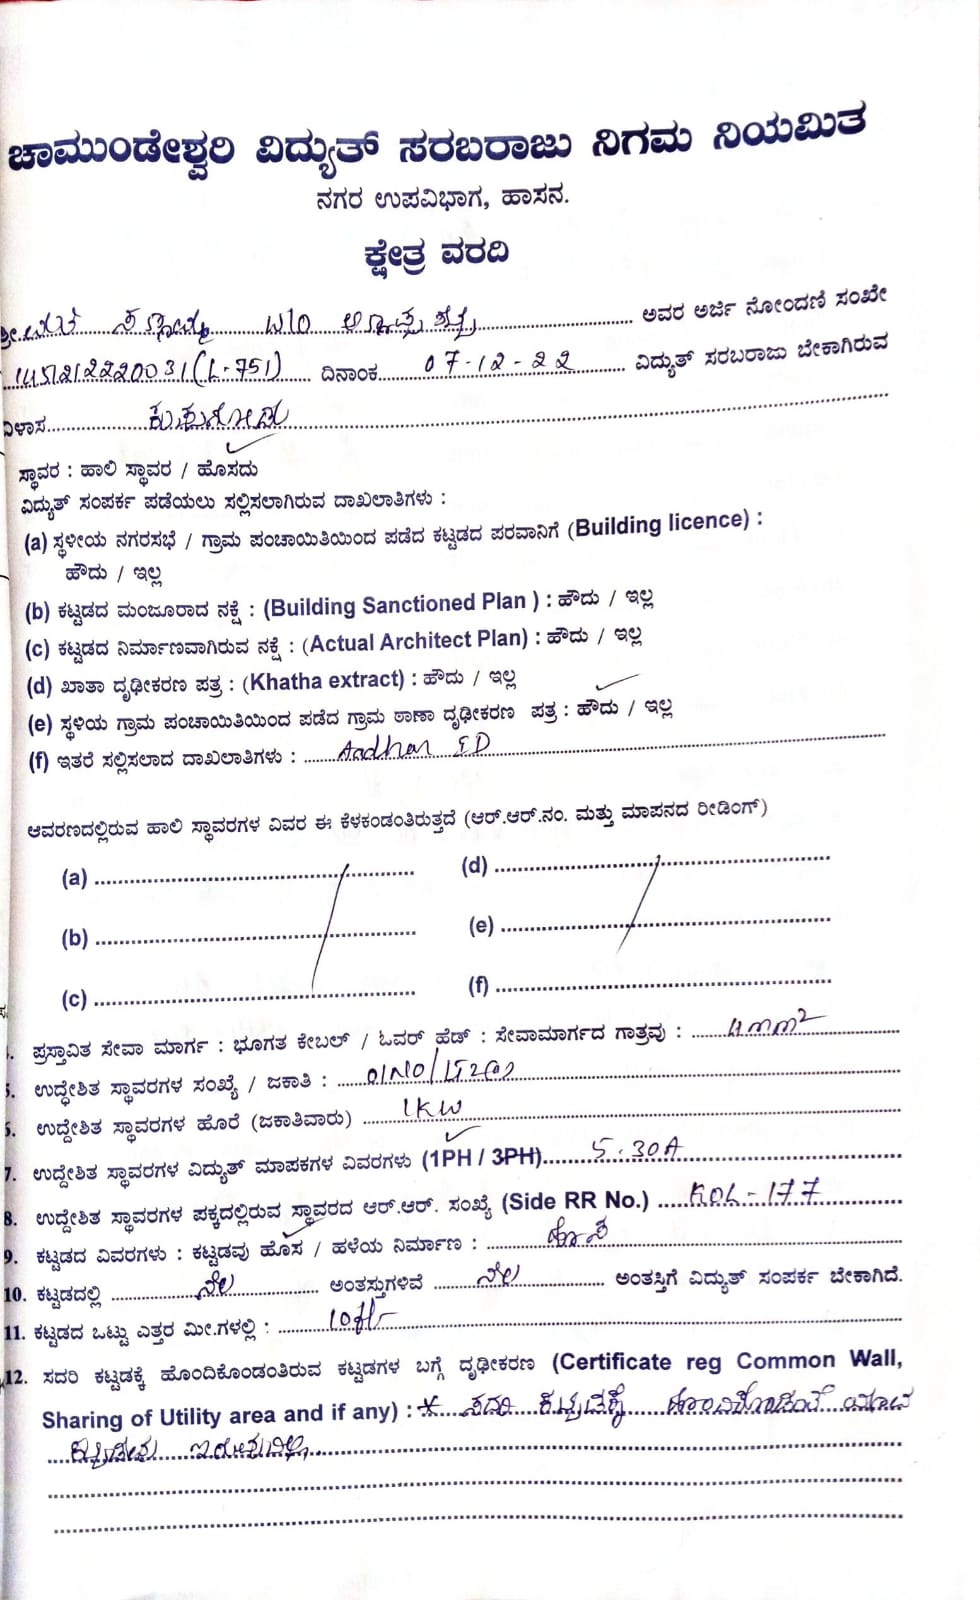 ಚಾಮುಂಡೇಶ್ವರಿ ವಿದ್ಯುತ್ ಸರಬರಾಜು ನಿಗಮ ನಿಯಮಿತ
ನಗರ ಉಪವಿಭಾಗ, ಹಾಸನ.
ಕ್ಷೇತ್ರ ವರದಿ
ಅವರ ಅರ್ಜಿ ನೋಂದಣಿ ಸಂಖೇ
(L-751) ದಿನಾಂಕ 07-12-22 ವಿದ್ಯುತ್ ಸರಬರಾಜು ಬೇಕಾಗಿರುವ
ವಿಳಾಸ
ಸ್ಥಾವರ : ಹಾಲಿ ಸ್ಥಾವರ / ಹೊಸದು
ವಿದ್ಯುತ್ ಸಂಪರ್ಕ ಪಡೆಯಲು ಸಲ್ಲಿಸಲಾಗಿರುವ ದಾಖಲಾತಿಗಳು :
(a) ಸ್ಥಳೀಯ ನಗರಸಭೆ / ಗ್ರಾಮ ಪಂಚಾಯಿತಿಯಿಂದ ಪಡೆದ ಕಟ್ಟಡದ ಪರವಾನಿಗೆ (Building licence) :
ಹೌದು / ಇಲ್ಲ
(b) ಕಟ್ಟಡದ ಮಂಜೂರಾದ ನಕ್ಷೆ : (Building Sanctioned Plan ) : ಹೌದು / ಇಲ್ಲ
(c) ಕಟ್ಟಡದ ನಿರ್ಮಾಣವಾಗಿರುವ ನಕ್ಷೆ : (Actual Architect Plan) : ಹೌದು / ಇಲ್ಲ
(d) ಖಾತಾ ದೃಢೀಕರಣ ಪತ್ರ : (Khatha extract) : ಹೌದು / ಇಲ್ಲ
(e) ಸ್ಥಳಿಯ ಗ್ರಾಮ ಪಂಚಾಯಿತಿಯಿಂದ ಪಡೆದ ಗ್ರಾಮ ಠಾಣಾ ದೃಢೀಕರಣ ಪತ್ರ : ಹೌದು / ಇಲ್ಲ
(f) ಇತರೆ ಸಲ್ಲಿಸಲಾದ ದಾಖಲಾತಿಗಳು : Aadhar ID
ಆವರಣದಲ್ಲಿರುವ ಹಾಲಿ ಸ್ಥಾವರಗಳ ವಿವರ ಈ ಕೆಳಕಂಡಂತಿರುತ್ತದೆ (ಆರ್.ಆರ್.ನಂ. ಮತ್ತು ಮಾಪನದ ರೀಡಿಂಗ್)
(a) (d)
(b) (e)
(c) (f)
ಪ್ರಸ್ತಾವಿತ ಸೇವಾ ಮಾರ್ಗ : ಭೂಗತ ಕೇಬಲ್ / ಓವರ್ ಹೆಡ್ : ಸೇವಾಮಾರ್ಗದ ಗಾತ್ರವು : 4mm²
ಉದ್ದೇಶಿತ ಸ್ಥಾವರಗಳ ಸಂಖ್ಯೆ / ಜಕಾತಿ : 01NO/LT2(a)
ಉದ್ದೇಶಿತ ಸ್ಥಾವರಗಳ ಹೊರೆ (ಜಕಾತಿವಾರು) 1KW
7. ಉದ್ದೇಶಿತ ಸ್ಥಾವರಗಳ ವಿದ್ಯುತ್ ಮಾಪಕಗಳ ವಿವರಗಳು (1PH / 3PH) 5-30A
8. ಉದ್ದೇಶಿತ ಸ್ಥಾವರಗಳ ಪಕ್ಕದಲ್ಲಿರುವ ಸ್ಥಾವರದ ಆರ್.ಆರ್. ಸಂಖ್ಯೆ (Side RR No.) KOL-177
9. ಕಟ್ಟಡದ ವಿವರಗಳು : ಕಟ್ಟಡವು ಹೊಸ / ಹಳೆಯ ನಿರ್ಮಾಣ : ಹೊಸ
10. ಕಟ್ಟಡದಲ್ಲಿ ನೆಲ ಅಂತಸ್ತುಗಳಿವೆ ನೆಲ ಅಂತಸ್ತಿಗೆ ವಿದ್ಯುತ್ ಸಂಪರ್ಕ ಬೇಕಾಗಿದೆ.
11. ಕಟ್ಟಡದ ಒಟ್ಟು ಎತ್ತರ ಮೀ.ಗಳಲ್ಲಿ : 10ft
12. ಸದರಿ ಕಟ್ಟಡಕ್ಕೆ ಹೊಂದಿಕೊಂಡಂತಿರುವ ಕಟ್ಟಡಗಳ ಬಗ್ಗೆ ದೃಢೀಕರಣ (Certificate reg Common Wall,
Sharing of Utility area and if any) : * ಸದರಿ ಕಟ್ಟಡಕ್ಕೆ ಹೊಂದಿಕೊಂಡಂತೆ ಯಾವ
ಕಟ್ಟಡವು ಇರುವುದಿಲ್ಲ